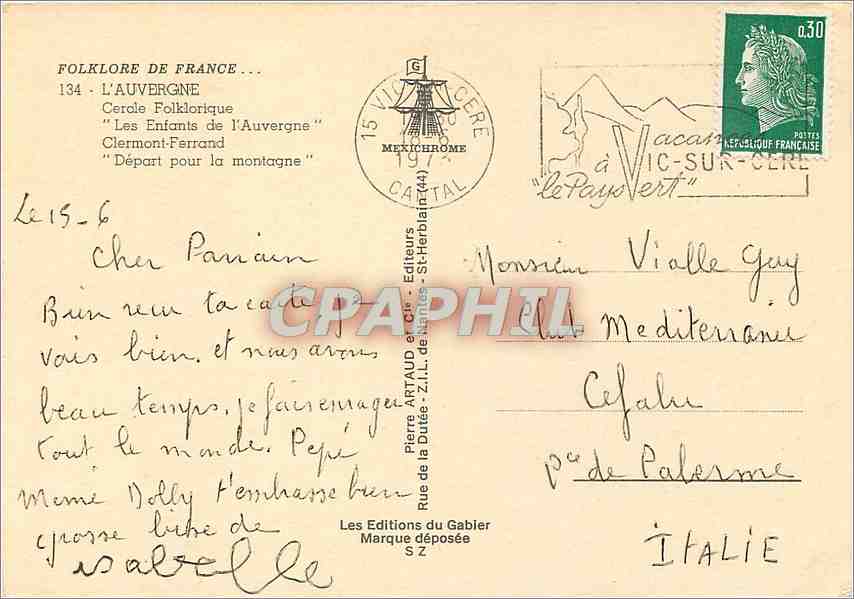 FOLKLORE DE FRANCE...
134 - L'AUVERGNE
Cercle Folklorique
"Les Enfants de l'Auvergne"
Clermont-Ferrand
"Départ pour la montagne"
G
MEXICHROME
15 VIC CERE
18-6
CANTAL
Vacances
à VIC-SUR-CERE
"le Pays Vert"
0,30
POSTES
REPUBLIQUE FRANÇAISE
Le 15-6
Cher Parrain
Bien recu ta carte, je
vais bien. et nous avons
beau temps. je fais enrager
tout le monde. Pepé
Mémé Dolly t'embrasse bien
grosse bise de
isabelle
Pierre ARTAUD et Cie - Editeurs
Rue de la Dutée - Z.I.L. de Nantes - St-Herblain (44)
Les Editions du Gabier
Marque déposée
S Z
Monsieur Vialle Guy
Club Mediterranée
Cefalu
Pce de Palerme
ITALIE
CPAPHIL